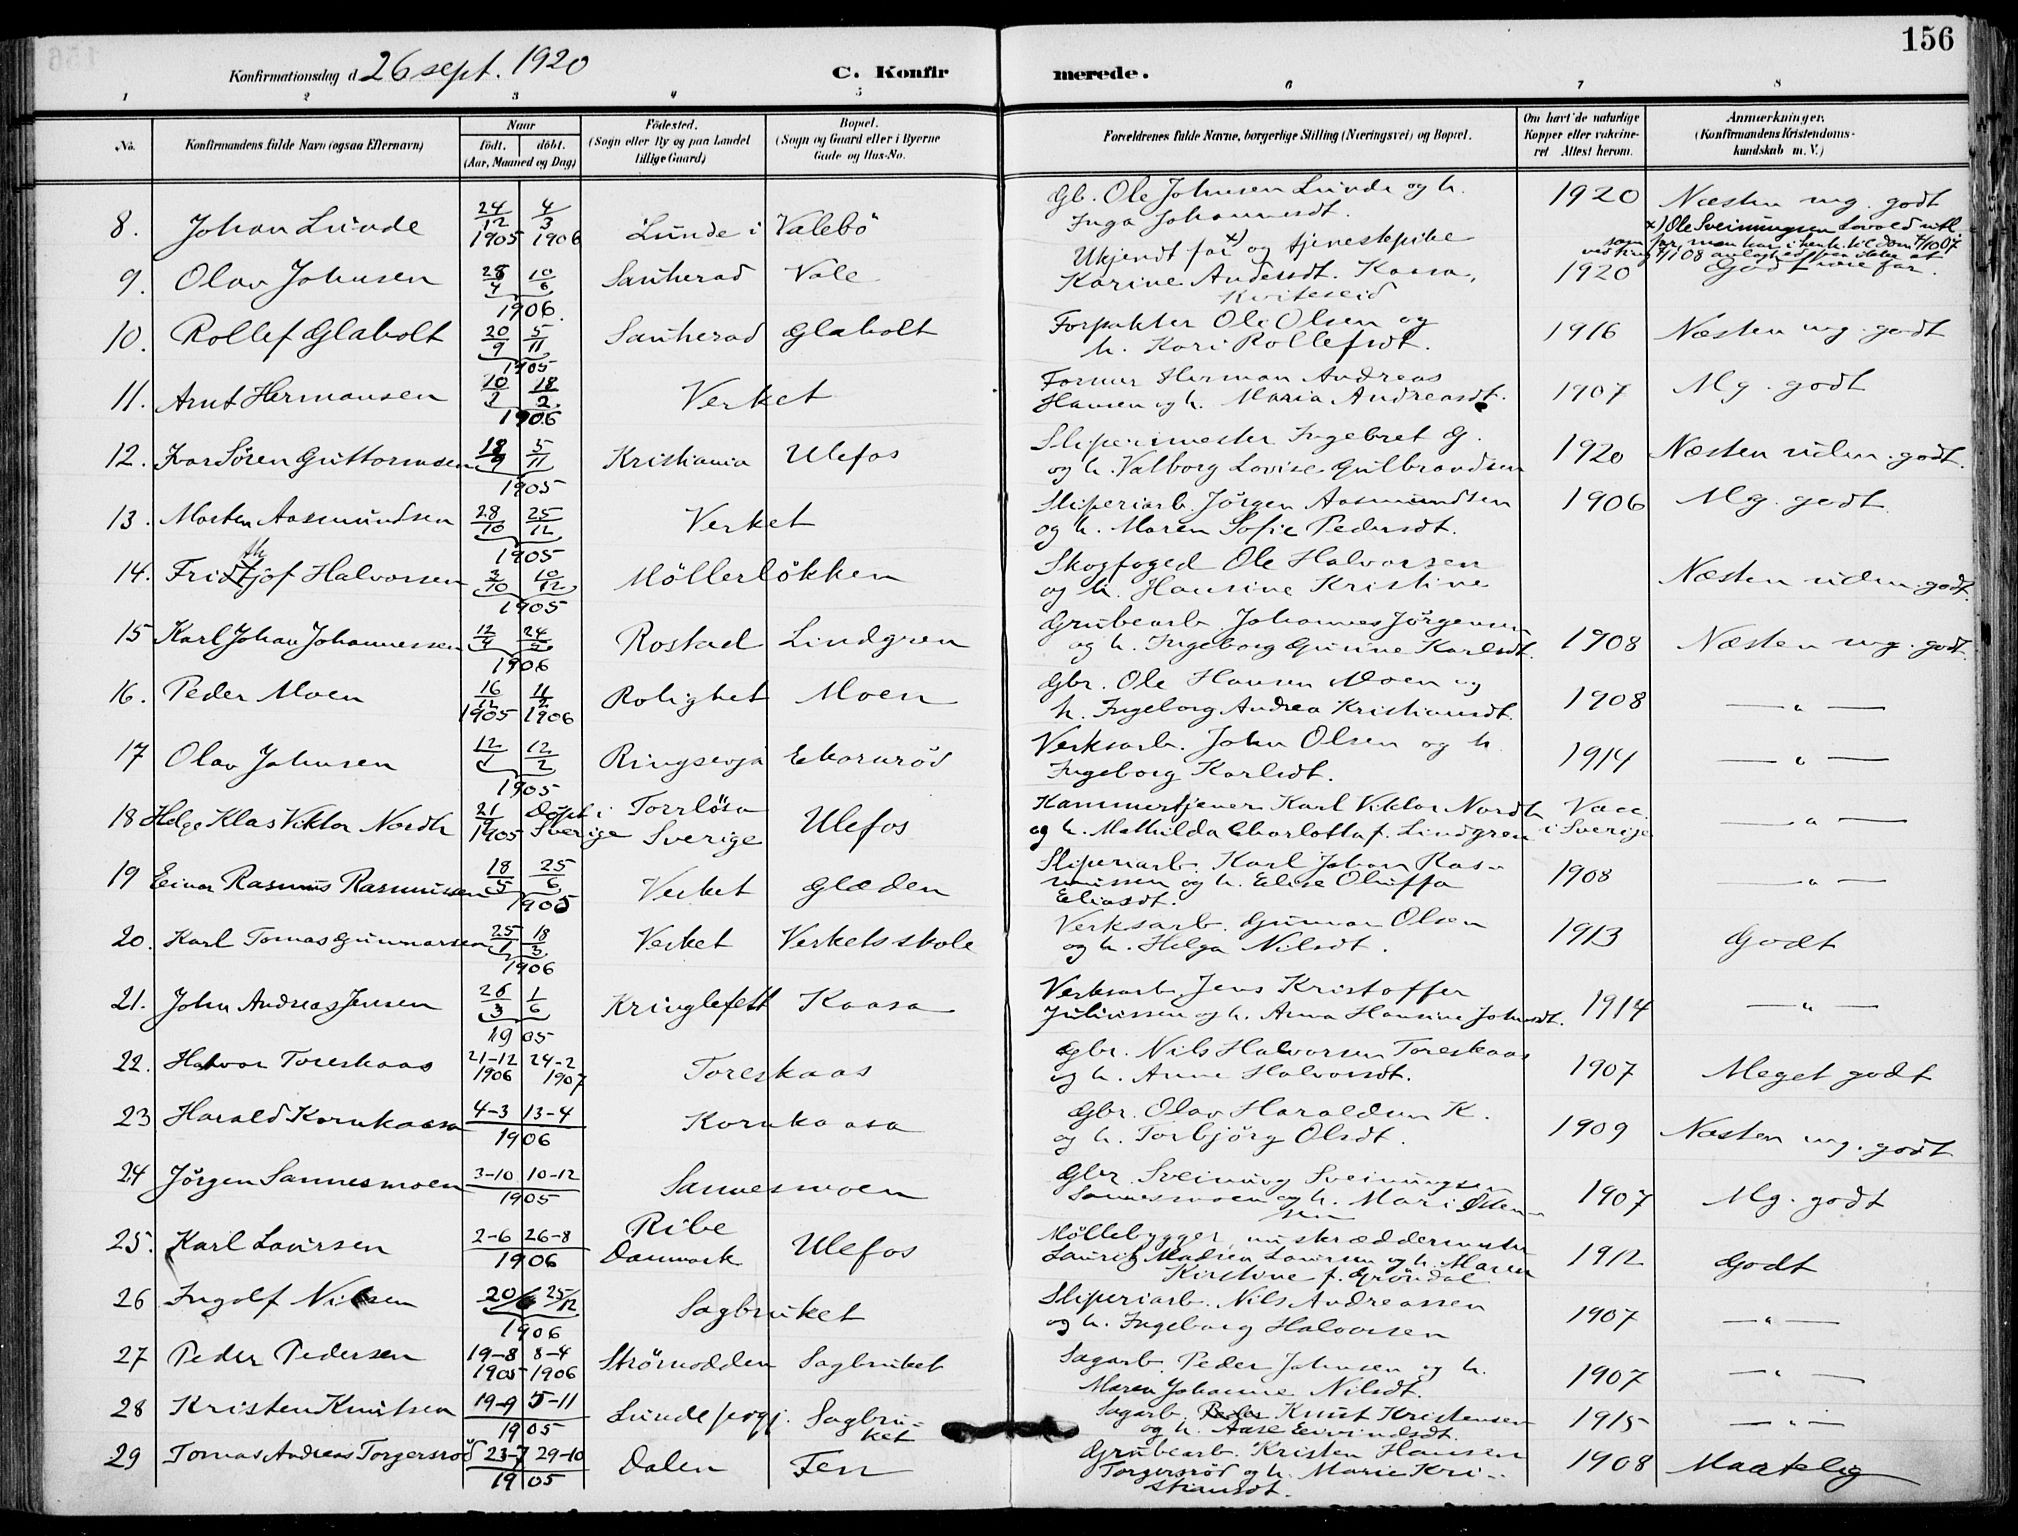 156
Konfirmationsdag d. 26 sept. 1920 C. Konfirmerede.
1 2 3 4 5 6 7 8
No. Konfirmandens fulde Navn (ogsaa Efternavn) Naar født. døbt. (Aar, Maaned og Dag) Fødested. (Sogn eller By og paa Landet tillige Gaard) Bopæl. (Sogn og Gaard eller i Byerne Gade og Hus-No. Forældrenes fulde Navne, borgerlige Stilling (Næringsvei) og Bopæl. Om havt de naturlige Kopper eller vakcineret Attest herom. Anmærkninger. (Konfirmandens Kristendomskundskab m. V.)
8. Johan Lunde 24/12 1905 4/3 1906 Lunde i Valebö Gb. Ole Johnsen Lunde og h. Inga Johannesdt. 1920 Næsten mg. godt
x) Ole Sveinungsen Lovold utl. som far, man har i henh. til dom 4/10 07 ved ting 7/1 08
9. Olav Johnsen 28/4 10/6 1906. Sauherad Vale Ukjendt far x) og tjenestepike Karine Andersdt. Kaasa, Kviteseid 1920 Godt
10. Rollef Glaholt 20/9 5/11 1905 Sauherad Glaholt Forpakter Ole Olsen og h. Kari Rollefsdt. 1916 Næsten mg. godt
11. Arnt Hermansen 10/1 18/2 1906 Verket Former Herman Andreas Hansen og h. Maria Andreasdt. 1907 Mg. godt
12. Ivar Sören Guttormsen 18/9 5/11 1905 Kristiania Ulefos Sliperimester Ingebret G. og h. Valborg Lovise Gulbrandsen 1920 Næsten uden. godt.
13. Morten Aasmundsen 28/10 25/12 1905 Verket Sliperiarb. Jörgen Aasmundsen og h. Maren Sofie Pedersdt. 1906 Mg. godt
14. Fridthjof Halvorsen 3/10 10/12 1905 Möllerlökken Skogfoged Ole Halvorsen og h. Hansine Kristine Næsten uden. godt.
15 Karl Johan Johannessen 12/1 24/2 1906 Rostad Lindgren Grubearb. Johannes Jörgensen og h. Ingeborg Gurine Karlsdt. 1908 Næsten mg. godt.
16. Peder Moen 16/12 1905 11/2 1906 Rolighet Moen Gbr. Ole Hansen Moen og h. Ingeborg Andrea Kristiansdt. 1908 — " —
17 Olav Johnsen 12/1 12/2 1905 Ringsevja Ekornröd Verksarb. John Olsen og h. Ingeborg Karlsdt. 1914 — " —
18 Helge Klas Viktor Nordh 21/9 1905 Döpt i Sverige Torrlösa Sverige Ulefos Kammertjener Karl Viktor Nordh og h. Mathilda Charlotta f. Lindgren Vacc. i Sverige — " —
19 Einar Rasmus Rasmussen 18/5 25/6 1905 Verket Glæden Sliperiarb. Karl Johan Rasmussen og h. Elise Oluffa Eliasdt. 1908 — " —
20. Karl Tomas Gunnarsen 25/1 18/3 1906 Verket Verkets skole Verksarb. Gunnar Olsen og h. Helga Nilsdt. 1913 Godt
21. John Andreas Jensen 26/3 1/6 1905 Kringlefett Kaasa Verksarb. Jens Kristoffer Juliussen og h. Anna Hansine Johnsdt. 1914 — " —
22. Halvor Toreskaas 21-12 1906 24-2 1907 Toreskaas Gbr. Nils Halvorsen Toreskaas og h. Anne Halvorsdt. 1907 Meget godt
23 Harald Kornkaasa 4-3 13-4 1906 Kornkaasa Gbr. Olav Haraldsen K. og h. Torbjörg Olsdt. 1909 Næsten mg. godt
24 Jörgen Sannesmoen 3-10 10-12 1905 Sannesmoen Gbr. Sveinung Sveinungsen Sannesmoen og h. Mari Ostensen 1907 Mg. godt
25. Karl Laursen 2-6 26-8 1906 Ribe Danmark Ulefos Möllebygger, nu skræddermester Laurits Madsen Laursen og h. Maren Kirstine f. Gröndal 1912 Godt
26 Ingolf Nilsen 20/6 25/12 1906 Sagbruket Sliperiarb. Nils Andreassen og h. Ingeborg Halvorsen 1907 — " —
27 Peder Pedersen 19-8 1905 8-4 1906 Strömodden Sagbruket Sagarb. Peder Johnsen og h. Maren Johanne Nilsdt. 1907 — " —
28 Kristen Knutsen 19-9 5-11 1905 Lunde prgj. Sagbruket Sagarb. Peder Knut Kristensen og h. Aase Eivindsdt. 1915 — " —
29 Tomas Andreas Torgersröd 23-7 29-10 1905 Dalen Fen Grubearb. Kristen Hansen Torgersröd og h. Marie Kristiansdt. 1908 Maatelig